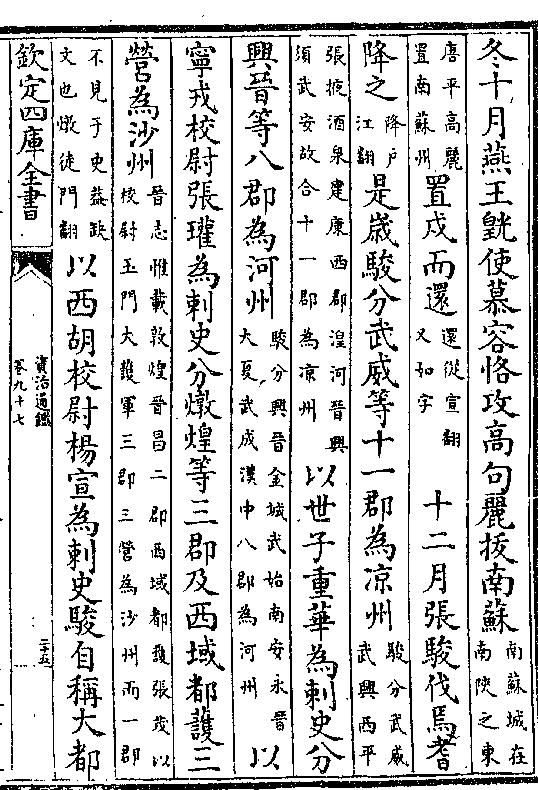 冬十月燕王皝使慕容恪攻高句麗拔南蘇南蘇城在南陜之東
唐平高麗置南蘇州置戍而還還從宣翻又如字十二月張駿伐焉耆
降之降户江翻是嵗駿分武威等十一郡為凉州駿分武威武興西平
張掖酒泉建康西郡湟河晉興須武安故合十一郡為凉州以世子重華為刺史分
興晉等八郡為河州駿分興晉金城武始南安永晉大夏武成漢中八郡為河州以
寧戎校尉張瓘為刺史分燉煌等三郡及西域都䕶三
營為沙州晉志惟載敦煌晉昌二郡西域都䕶張茂以校尉玉門大䕶軍三郡三營為沙州而一郡
不見于史葢缺文也燉徒門翻以西胡校尉楊宣為刺史駿自稱大都
欽定四庫全書
資治通鑑
卷九十七
二十五